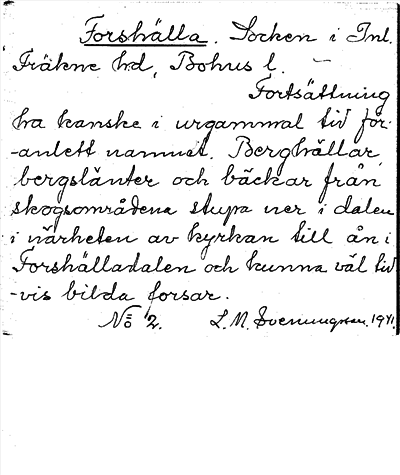 Forshälla. Socken i Inl.
Fräkne hd, Bohus l. –
Fortsättning
ha kanske i urgammal tid för-
-anlett namnet. Berghällar,
bergslänter och bäckar från
skogsområdena stupa ner i dalen
i närheten av kyrkan till ån i
Forshälladalen och kunna väl tid
-vis bilda forsar.
No 2. L. M. Svenungsson. 1941.